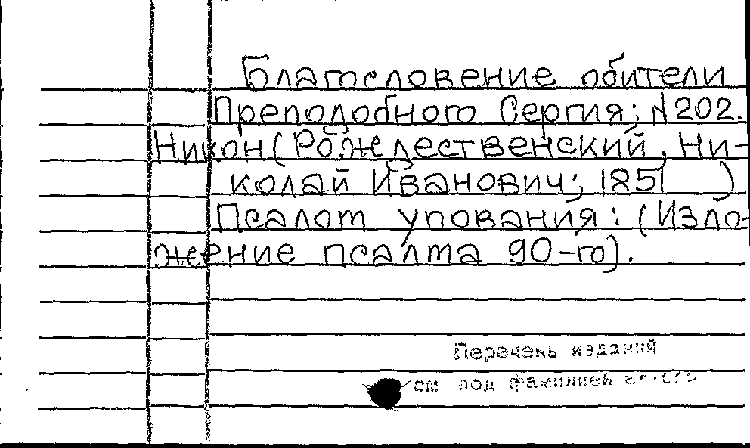 Благословение обители
Преподобного Сергия; N202.
Никон (Рождественский, Ни-
колай Иванович; 1851 )
Псалом упования: (Изло-
жение псалма 90-го).
Перечень изданий
см под фамилией